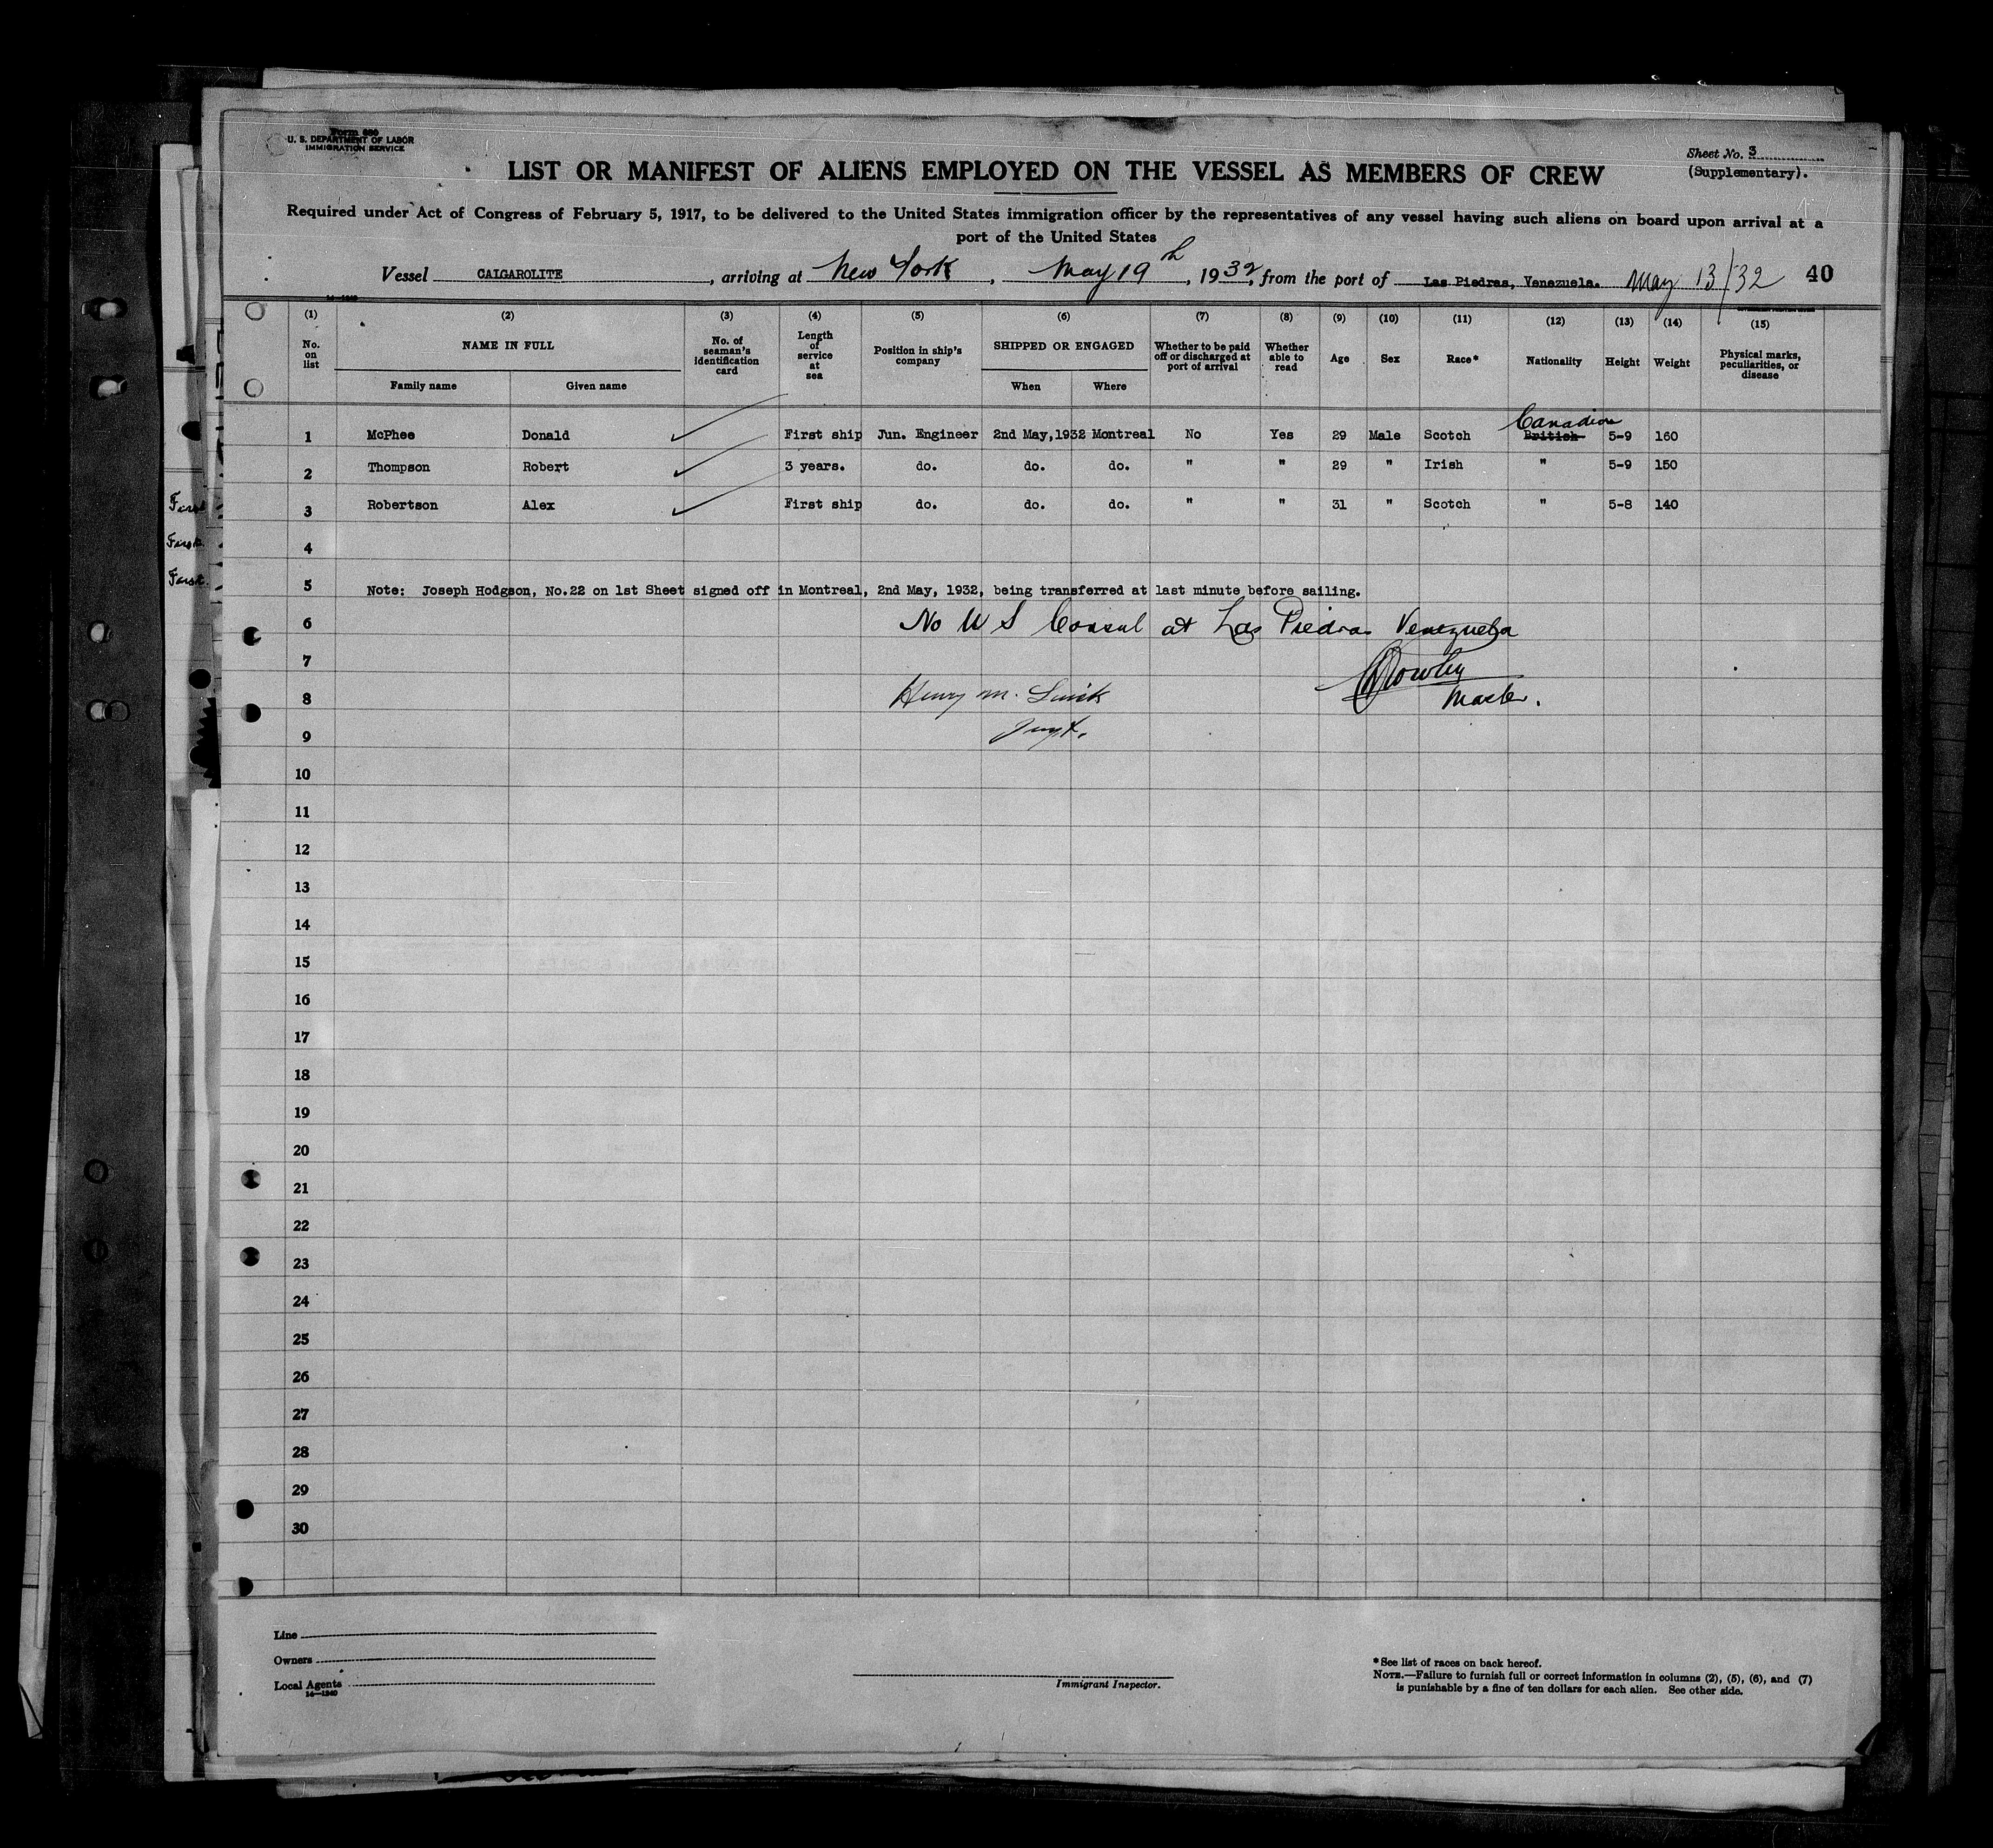 Form 680
U. S. DEPARTMENT OF LABOR
IMMIGRATION SERVICE
Sheet No. 3
(Supplementary).
LIST OR MANIFEST OF ALIENS EMPLOYED ON THE VESSEL AS MEMBERS OF CREW
Required under Act of Congress of February 5, 1917, to be delivered to the United States immigration officer by the representatives of any vessel having such aliens on board upon arrival at a
port of the United States
Vessel CALGAROLITE, arriving at New York, May 19th, 1932, from the port of Las Piedras, Venezuela. May 13/32 40
(1) No. on list
(2) NAME IN FULL
Family name Given name
(3) No. of seaman's identification card
(4) Length of service at sea
(5) Position in ship's company
(6) SHIPPED OR ENGAGED
When Where
(7) Whether to be paid off or discharged at port of arrival
(8) Whether able to read
(9) Age
(10) Sex
(11) Race*
(12) Nationality
(13) Height
(14) Weight
(15) Physical marks, peculiarities, or disease
Canadian
1 McPhee Donald First ship Jun. Engineer 2nd May,1932 Montreal No Yes 29 Male Scotch British 5-9 160
2 Thompson Robert 3 years. do. do. do. " " 29 " Irish " 5-9 150
3 Robertson Alex First ship do. do. do. " " 31 " Scotch " 5-8 140
4
5 Note: Joseph Hodgson, No.22 on 1st Sheet signed off in Montreal, 2nd May, 1932, being transferred at last minute before sailing.
6 No U S Consul at Las Piedras Venezuela
7
8 Henry M. Master.
9
10
11
12
13
14
15
16
17
18
19
20
21
22
23
24
25
26
27
28
29
30
Line
Owners
Local Agents
14—1240
Immigrant Inspector.
*See list of races on back hereof.
NOTE.—Failure to furnish full or correct information in columns (2), (5), (6), and (7)
is punishable by a fine of ten dollars for each alien. See other side.